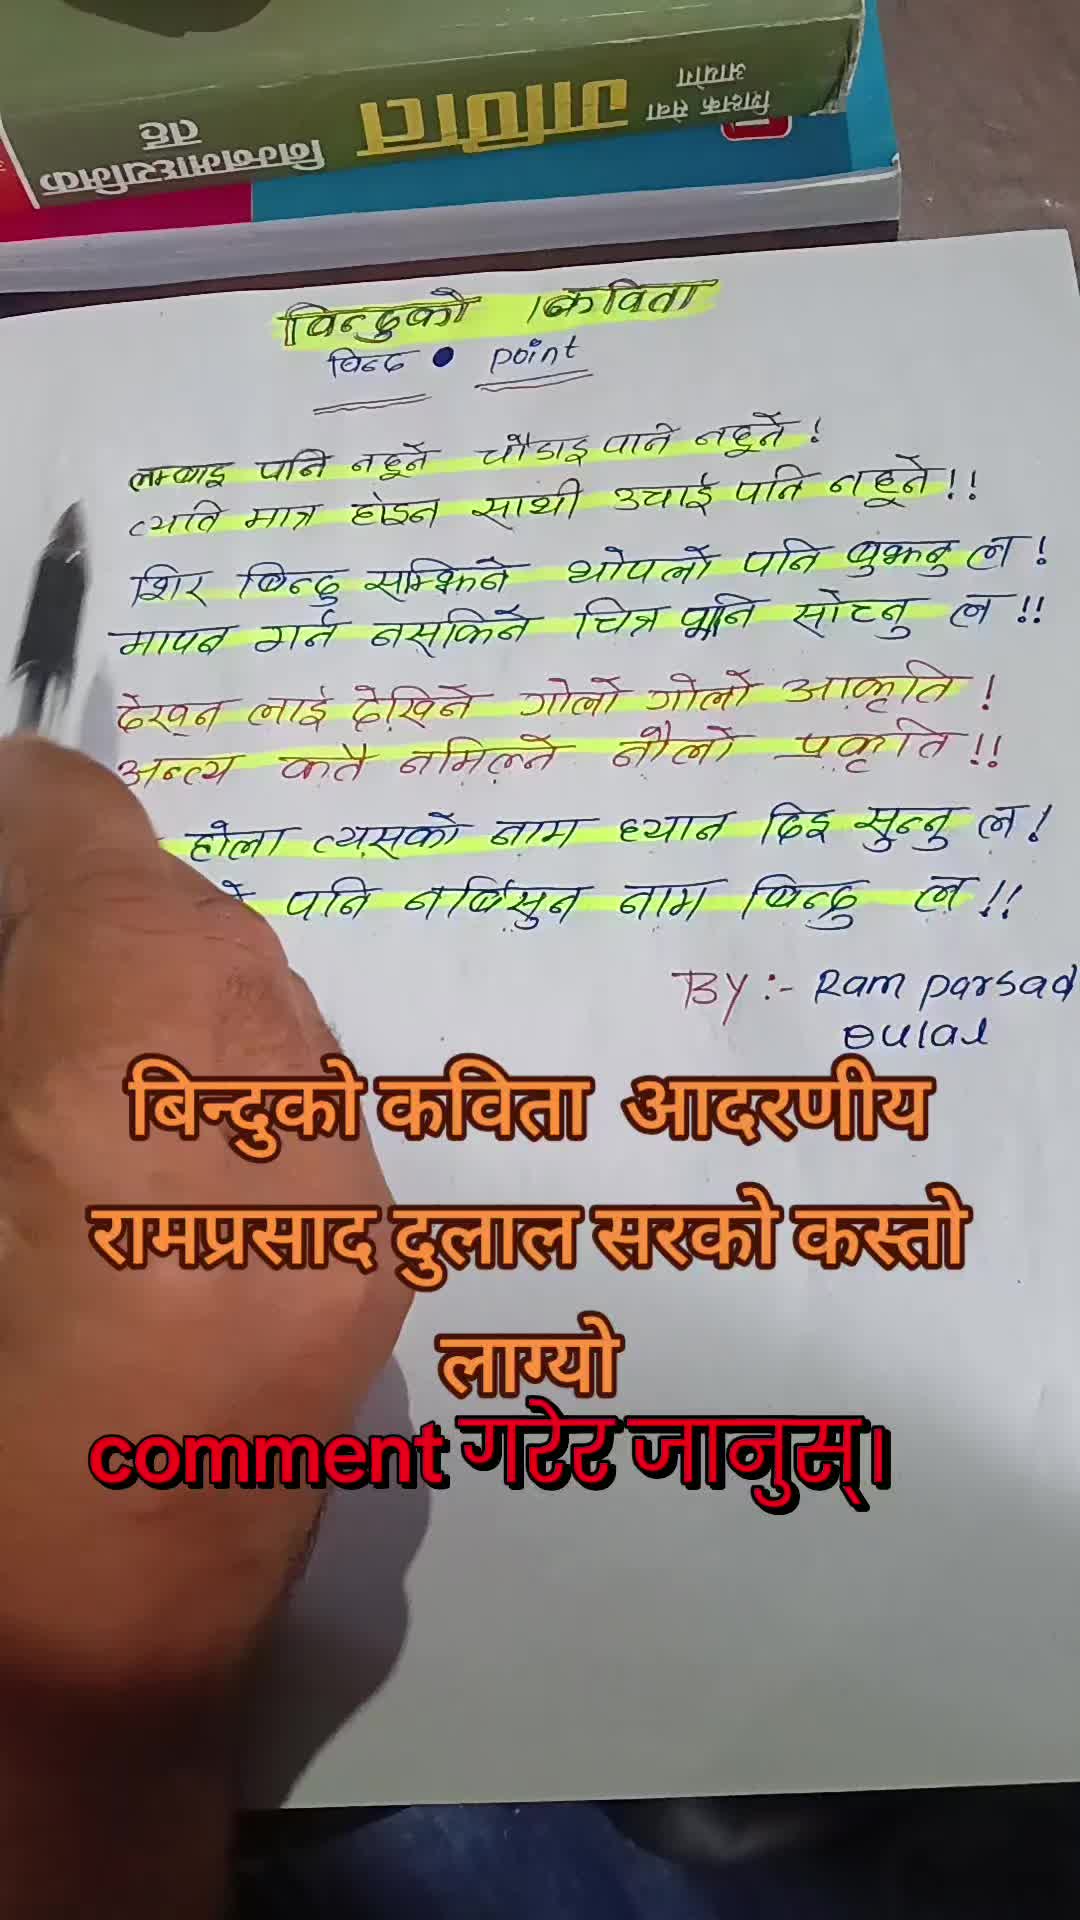 शिक्षक सेवा आयोग
गणित
निम्नमाध्यमिक तह
विन्दुको कविता
बिन्दु • point
लम्बाइ पनि नहुने चौडाइ पनि नहुने!
त्यति मात्र होइन साथी उचाई पनि नहुने!!
शिर बिन्दु सम्झिने थोपलो पनि बुझ्नु ल!
मापन गर्न नसकिने चित्र पनि सोच्नु ल!!
देख्न लाई देखिने गोलो गोलो आकृति!
अन्त्य कतै नमिल्ने नौलो प्रकृति!!
होला त्यसको नाम ध्यान दिइ सुन्नु ल!
पनि नर्बिसुन नाम बिन्दु ल!!
BY:- Ram parsad
Dulal
बिन्दुको कविता आदरणीय
रामप्रसाद दुलाल सरको कस्तो
लाग्यो
comment गरेर जानुस्।